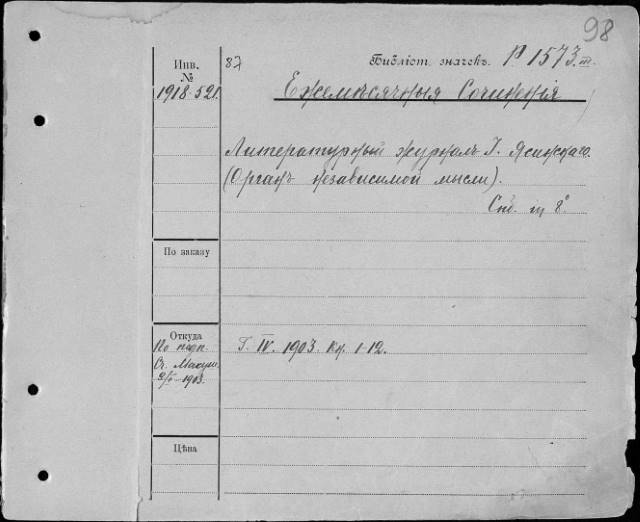 98
Инв.
№
1918.521.
87
Библіот. значекъ. P 1573.m.
Ежемѣсячныя Сочиненія
Литературный журналъ І. Ясинскаго.
(Органъ независимой мысли).
Спб. in 8°
По заказу
Откуда
По подп.
Сч.
1903.
Г. IV. 1903. Кн. 1-12.
Цѣна